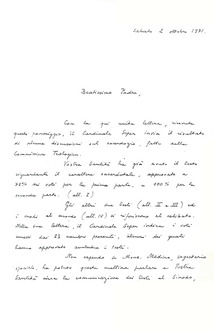 Sabato 2 ottobre 1971.
Beatissimo Padre,
Con la qui unita lettera, ricevuta
questo pomeriggio, il Cardinale Seper invia il risultato
di alcune discussioni sul sacerdozio, fatte dalla
Commissione Teologica.
Vostra Santità ha già avuto il testo
riguardante il carattere sacerdotale, approvato a
92% dei voti per la prima parte, a 100% per la
seconda parte. (all. I)
Gli altri due testi (all. II e III) ed
i modi al secondo (all. IV) si riferiscono al celibato.
Nella sua lettera, il Cardinale Seper indica i voti
avuti dai 23 membri presenti, alcuni dei quali
hanno approvato ambedue i testi.
Non sapendo se Mons. Medina, segretario
speciale, ha potuto questa mattina parlare a Vostra
Santità circa la comunicazione dei testi al Sinodo,